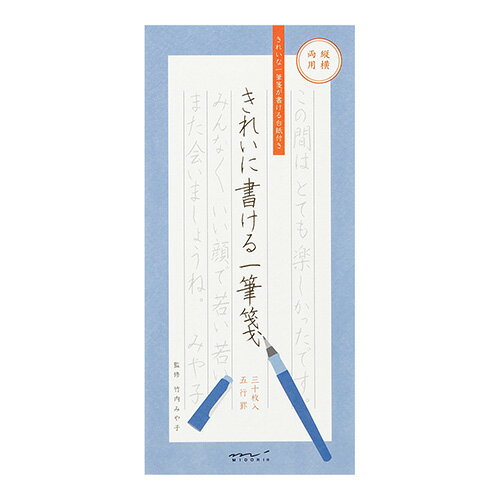 縦横
両用
きれいな一筆箋が書ける台紙付き
この間はとても楽しかったです。
きれいに書ける一筆箋
みんなくいい顔で若い若い
また会いましょうね。 みや子
三十枚入
五行罫
監修 竹内みや子
MIDORI